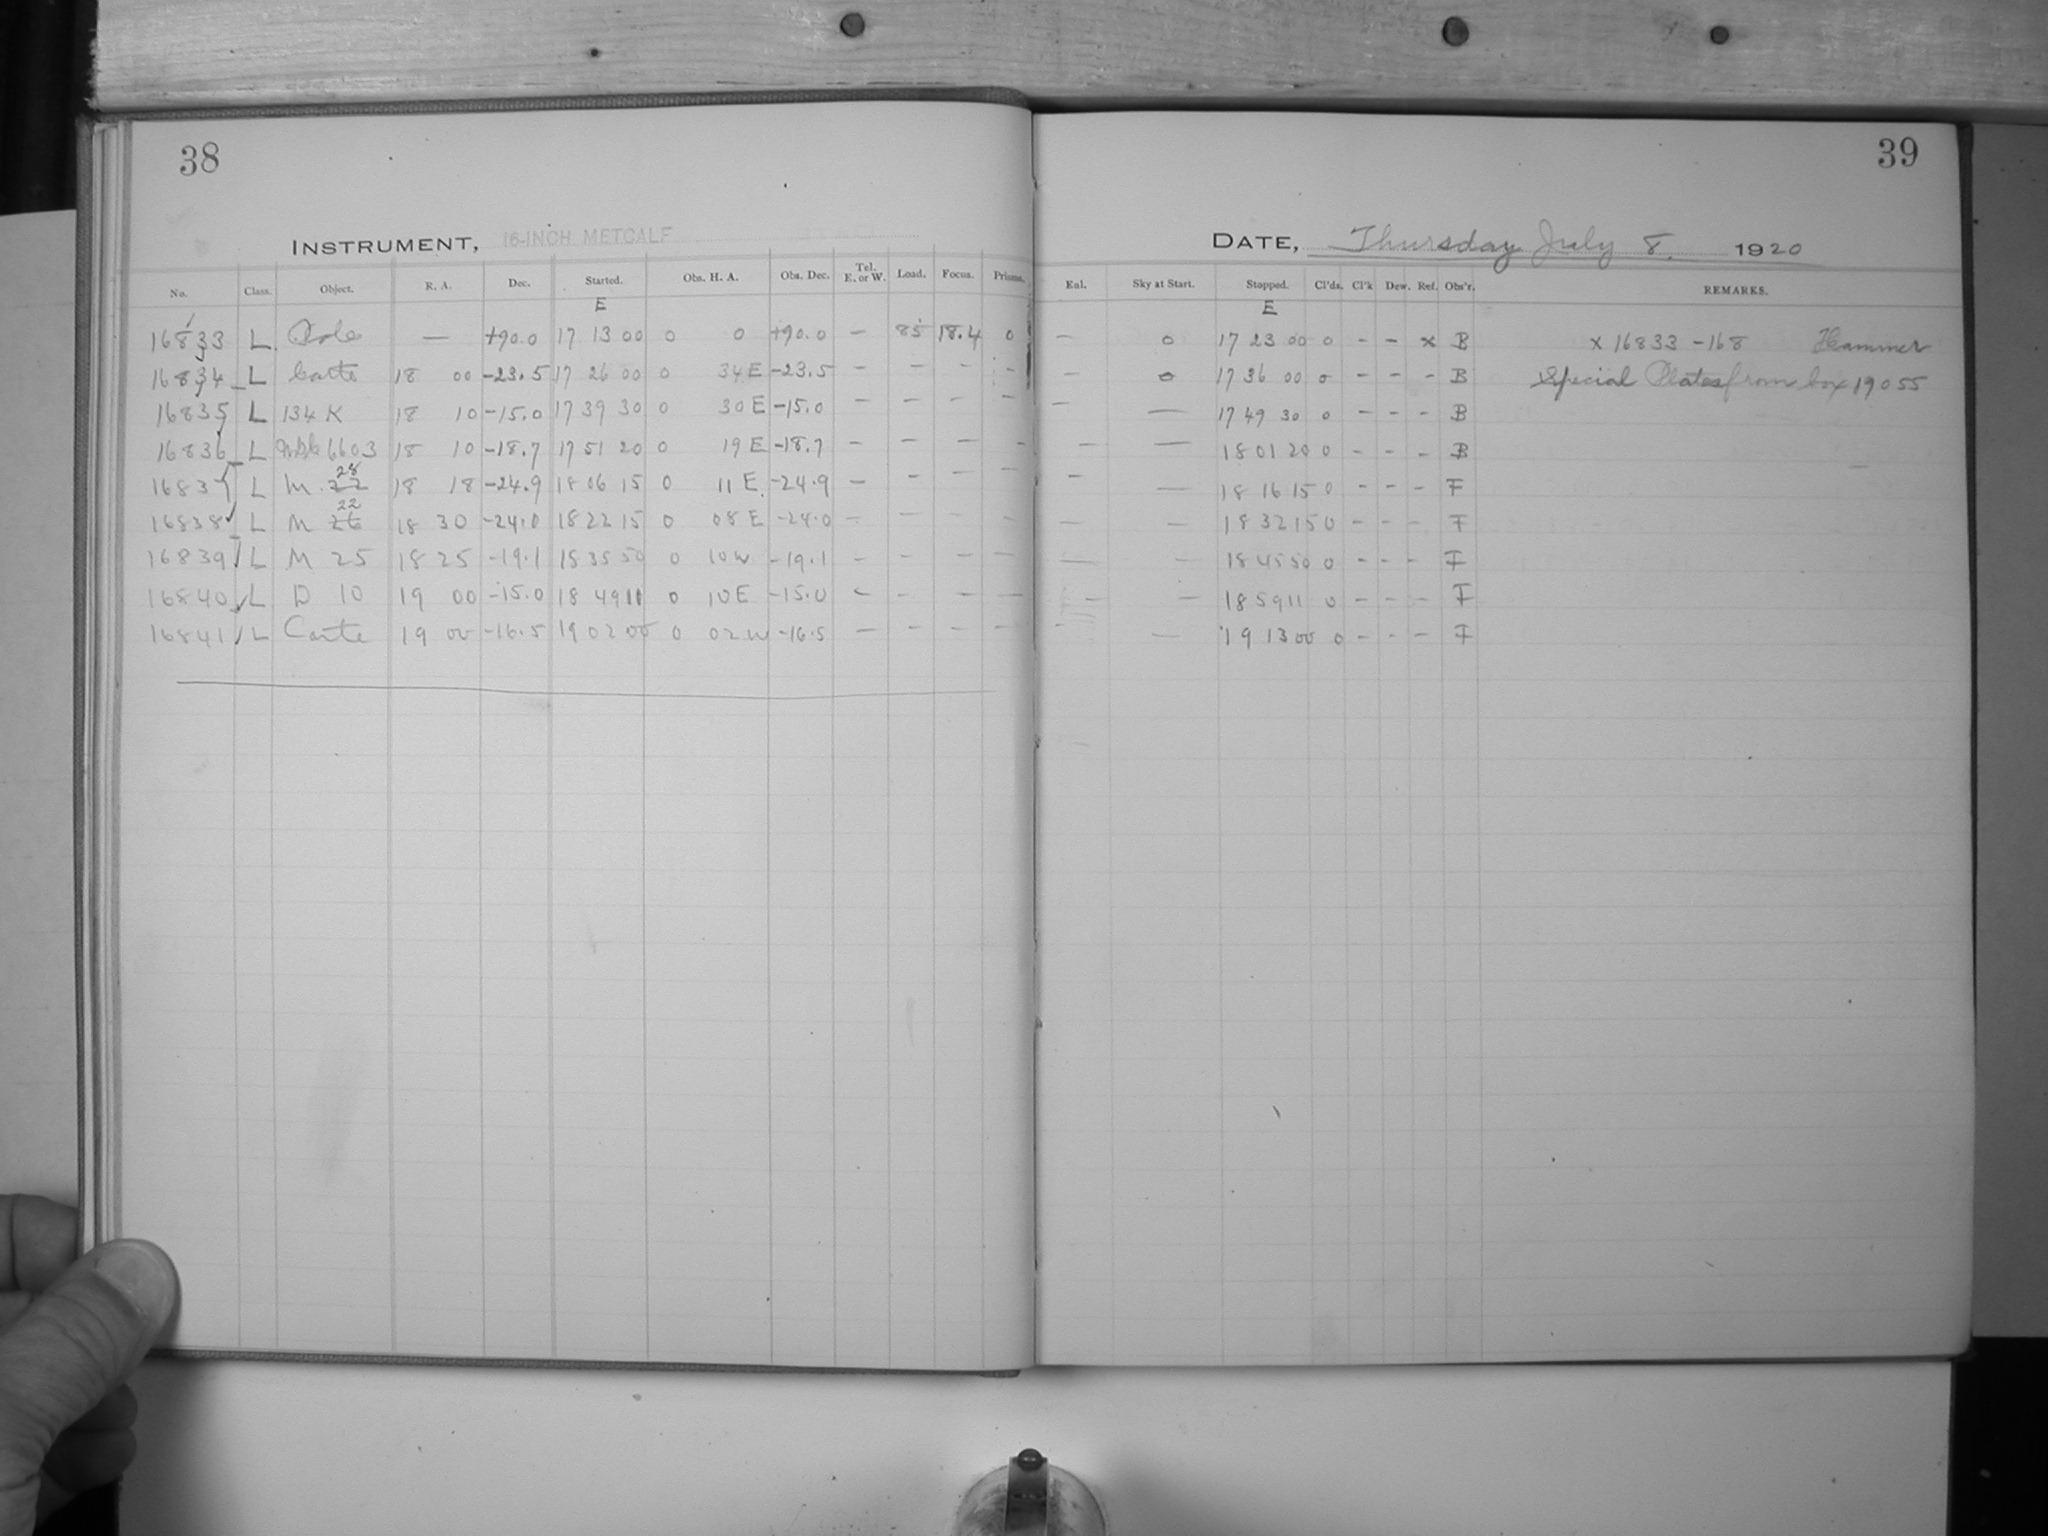 38
39
INSTRUMENT, 16-INCH METCALF
DATE, Thursday July 8. 1920
No. Class. Object. R. A. Dec. Started. Obs. H. A. Obs. Dec. Tel. E. or W. Load. Focus. Prisms. Enl. Sky at Start. Stopped. Cl'ds. Cl'k Dew. Ref. Obs'r. REMARKS.
E E
16833 L Pole — +90.0 17 13 00 0 0 +90.0 — 85 18.4 0 — 0 17 23 00 0 - - x B x 16833 - 168 Hammer
16834 L Carte 18 00 -23.5 17 26 00 0 34 E -23.5 — — — — — 0 17 36 00 0 - - - B Special Plates from box 19055
16835 L 134 K 18 10 -15.0 17 39 30 0 30 E -15.0 — — — — — — 17 49 30 0 - - - B
16836 L 6603 18 10 -18.7 17 51 20 0 19 E -18.7 — — — — — — 18 01 20 0 - - - B
16837 L M 22 28 18 18 -24.9 18 06 15 0 11 E -24.9 — — — — — — 18 16 15 0 - - - F
16838 L M 26 22 18 30 -24.0 18 22 15 0 08 E -24.0 — — — — — — 18 32 15 0 - - - F
16839 L M 25 18 25 -19.1 18 35 50 0 10 W -19.1 — — — — — — 18 45 50 0 - - - F
16840 L D 10 19 00 -15.0 18 49 11 0 10 E -15.0 — — — — — — 18 59 11 0 - - - F
16841 L Carte 19 00 -16.5 19 02 00 0 02 W -16.5 — — — — — — 19 13 00 0 - - - F